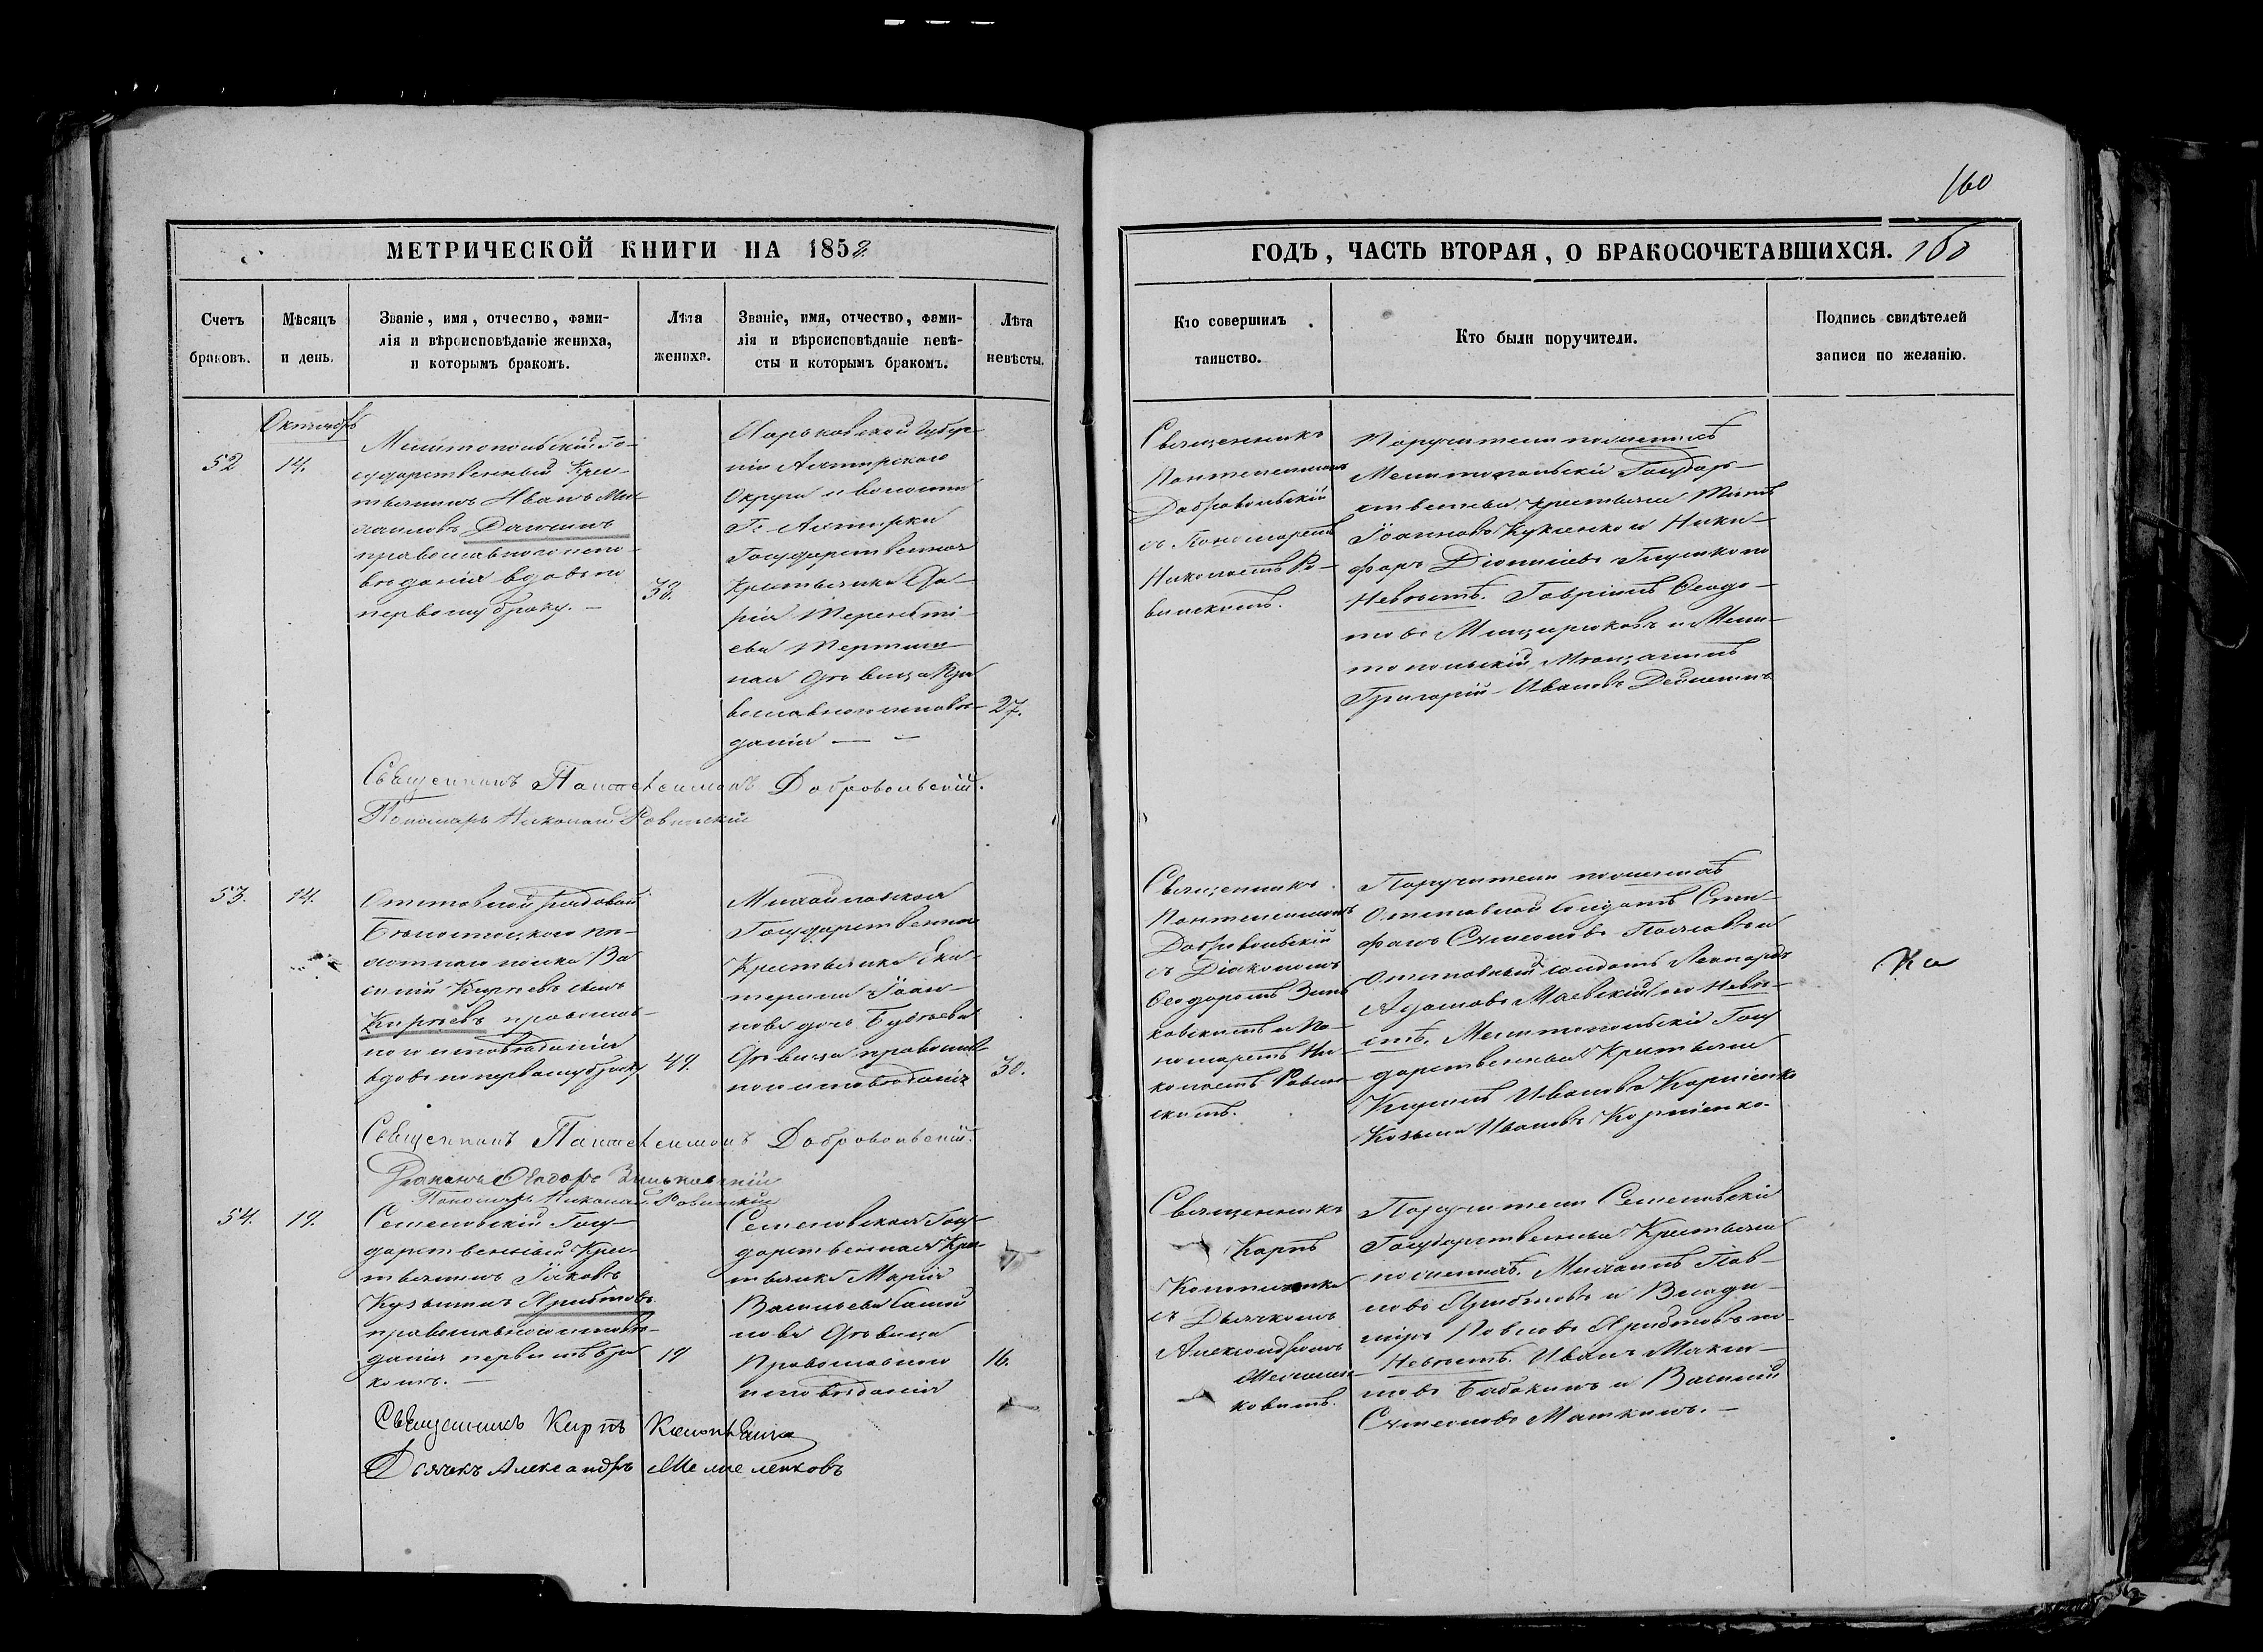 160
МЕТРИЧЕСКОЙ КНИГИ НА 1858
ГОДЪ, ЧАСТЬ ВТОРАЯ, О БРАКОСОЧЕТАВШИХСЯ. 160
Счетъ
браковъ.
Мѣсяцъ
и день.
Званіе, имя, отчество, фами-
лія и вѣроисповѣданіе жениха,
и которымъ бракомъ.
Лѣта
жениха.
Званіе, имя, отчество, фами-
лія и вѣроисповѣданіе невѣ-
сты и которымъ бракомъ.
Лѣта
невѣсты.
Кто совершилъ
таинство.
Кто были поручители.
Подпись свидѣтелей
записи по желанію.
Октябрь
52
14.
Мелитопольскій Го-
сударственный Крес-
тьянинъ Иванъ Ми-
хаиловъ
православного испо-
вѣданія вдовъ по
первому браку. —
38.
Харьковской Губер-
ніи Ахтырского
Округа и волости
Г. Ахтырки
Государственная
Крестьянка Да-
рія Теренті-
ева
ная дѣвица Пра
вославного исповѣ-
данія — —
27.
Священникъ
Пантелеимонъ
Добровольскій
съ Пономаремъ
Николаемъ Ро-
винскимъ.
Поручители по женихѣ
Мелитопольскіе Государ-
ственные крестьяне Титъ
Іоанновъ Кукленко и Ники-
форъ Діонисіевъ Глушко по
Невѣстѣ. Гавріилъ Ѳеодо-
товъ Мищиряковъ и Мели-
топольскій Мѣщанинъ
Григорій Ивановъ
Священникъ Пантелеимонъ Добровольскій.
Пономарь Николай Ровинскій
53.
14.
Отставной рядовой
Бѣлостоцкого пѣ-
хотного полка Ва
силій Кирѣевъ сынъ
Кирѣевъ православ-
ного исповѣданія
вдовъ по первому браку
49.
Михайловская
Государственная
Крестьянка Ека-
терина Іоан-
нова дочь
Дѣвица православ
ного исповѣданія
30.
Священникъ
Пантелеимонъ
Добровольскій
съ Діакономъ
Ѳеодоромъ Зинь
ковскимъ и По-
номаремъ Ни-
колаемъ Ровин-
скимъ.
Поручители по женихѣ
Отставной солдатъ Сте-
фанъ Сѵмеоновъ и
Отставный солдатъ Леонардъ
Адамовъ Маевскій по Невѣ-
стѣ. Мелитопольскіе Госу
дарственные Крестьяне
Кириллъ Ивановъ Корніенко
Козьма Ивановъ Корніенко.
Ка
Священникъ Пантелеимонъ Добровольскій.
Діаконъ Ѳеодоръ Зиньковскій
Пономарь Николай Ровинскій
54.
19.
Семеновскій Госу-
дарственный Крес-
тьянинъ Іаковъ
Кузьминъ
православного исповѣ-
данія первымъ бра
комъ. —
19
Семеновская Госу-
дарственная Кре-
тьянка Марія
Васильева
нова Дѣвица
Православного
исповѣданія
16.
Священникъ
Карпъ
съ Дьячкомъ
Александромъ
Поручители Семеновскіе
Государственные Крестьяне
по женихѣ. Михаилъ Пав-
ловъ и Влади-
міръ Павловъ по
Невѣстѣ. Иванъ
товъ Бабакинъ и Василій
Сѵмеоновъ Маткинъ. —
Священникъ Карпъ
Дьячекъ Александръ